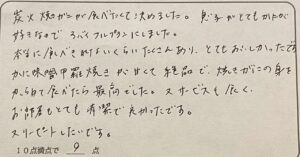 炭火焼がにが食べたくて決めました。息子がとてもカニが
好きなのでスペシャルプランにしました。
本当に食べきれないくらいたくさんあり、とてもおいしかったです
かに味噌甲羅焼きが甘くて絶品で、焼きがにの身を
からめて食べたら最高でした。又サービスも良く、
お部屋もとても清潔で良かったです。
又リピートしたいです。
10点満点で 9 点